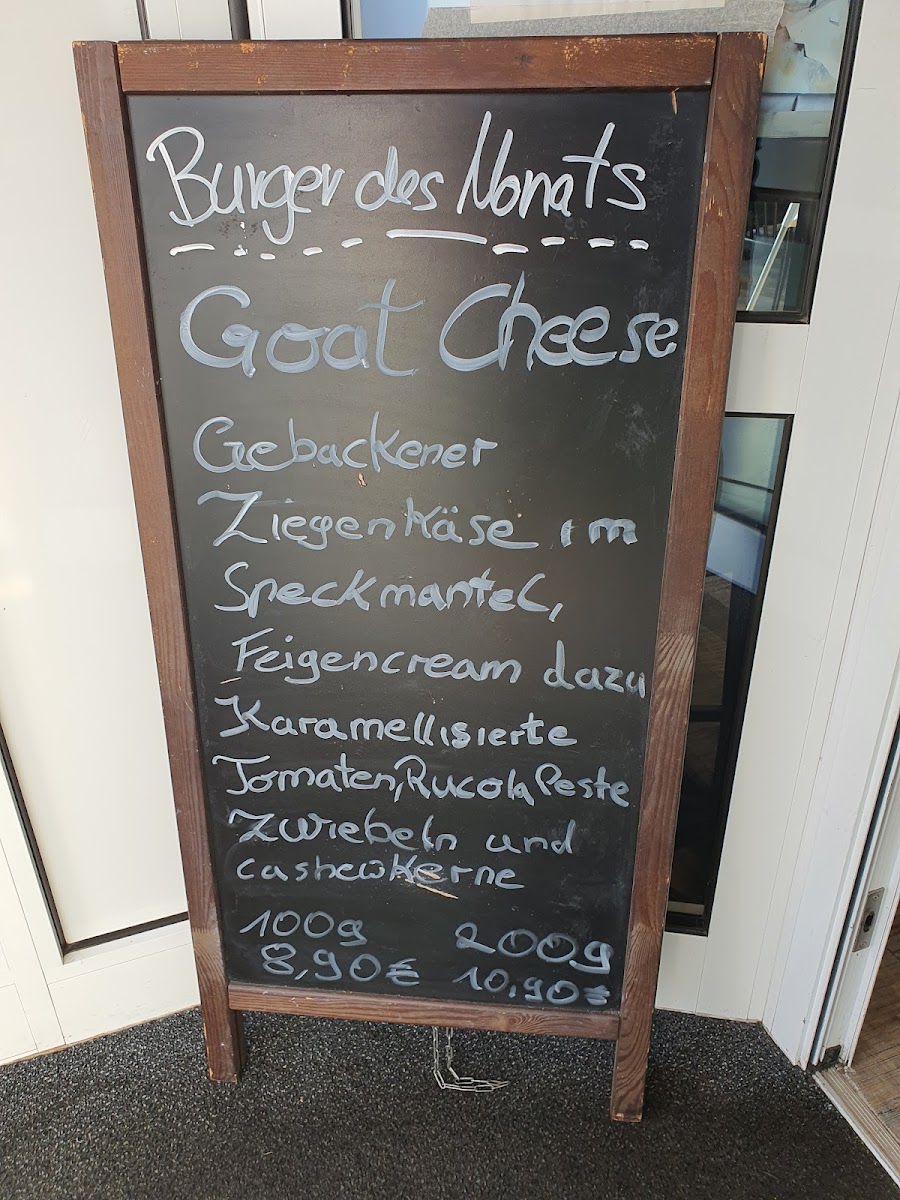 Burger des Monats
Goat Cheese
Gebackener
Ziegenkäse im
Speckmantel,
Feigencream dazu
Karamellisierte
Tomaten, Rucola Peste
Zwiebeln und
cashewkerne
100g 200g
8,90€ 10,90€